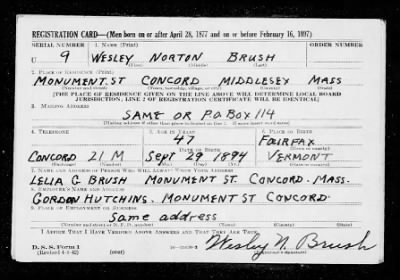 REGISTRATION CARD—(Men born on or after April 28, 1877 and on or before February 16, 1897)
SERIAL NUMBER 1. NAME (Print) ORDER NUMBER
U 9 WESLEY NORTON BRUSH
(First) (Middle) (Last)
2. PLACE OF RESIDENCE (Print)
MONUMENT. ST CONCORD MIDDLESEX MASS
(Number and street) (Town, township, village, or city) (County) (State)
[THE PLACE OF RESIDENCE GIVEN ON THE LINE ABOVE WILL DETERMINE LOCAL BOARD
JURISDICTION; LINE 2 OF REGISTRATION CERTIFICATE WILL BE IDENTICAL]
3. MAILING ADDRESS
SAME OR P.O. BOX 114
[Mailing address if other than place indicated on line 2. If same insert word same]
4. TELEPHONE 5. AGE IN YEARS 6. PLACE OF BIRTH
47 FAIRFAX
DATE OF BIRTH
CONCORD 21 M SEPT 29 1894 VERMONT
7. NAME AND ADDRESS OF PERSON WHO WILL ALWAYS KNOW YOUR ADDRESS
LELIA G. BRUSH MONUMENT ST. CONCORD. MASS.
8. EMPLOYER'S NAME AND ADDRESS
GORDON HUTCHINS. MONUMENT ST CONCORD.
9. PLACE OF EMPLOYMENT OR BUSINESS
Same address
I AFFIRM THAT I HAVE VERIFIED ABOVE ANSWERS AND THAT THEY ARE TRUE.
D. S. S. Form 1
(Revised 4-1-42) (over)
Wesley N. Brush